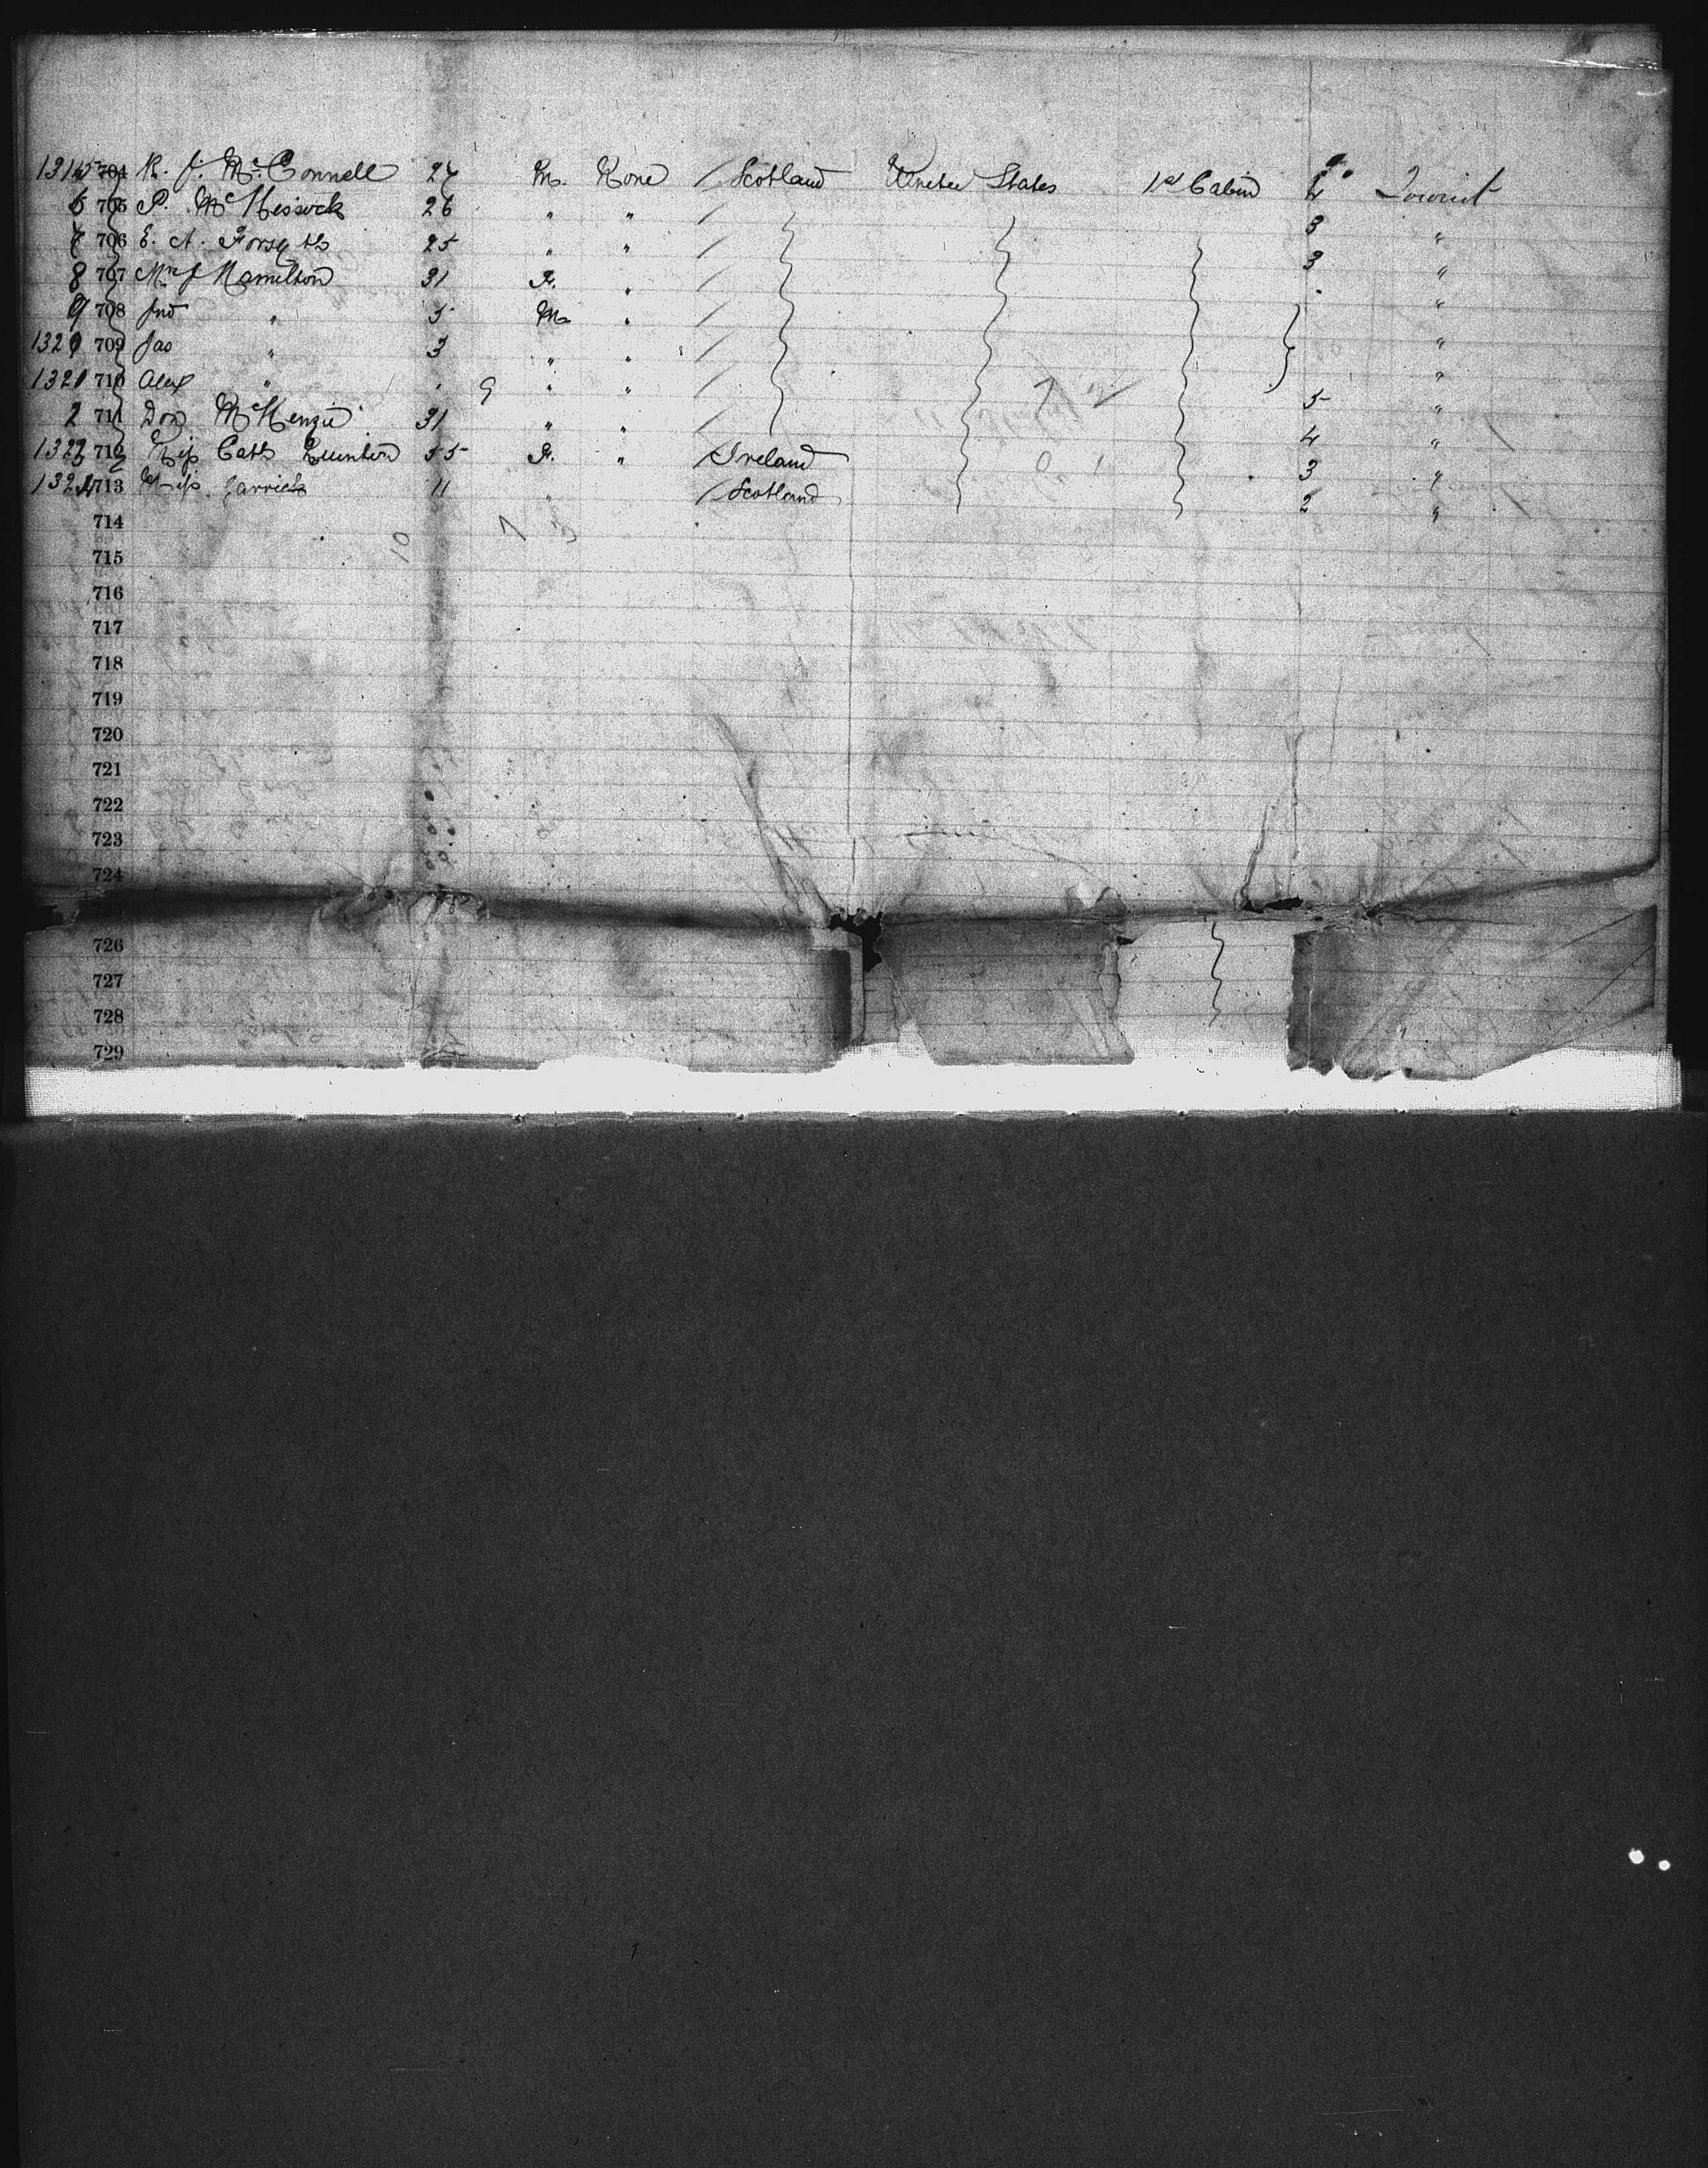 1315 704 R. J. McConnell 27 M. None / Scotland United States 1st Cabin 4 Tourist
6 705 P. McKessock 26 " " / 3 "
7 706 E. A. Forsyth 25 " " / 3 "
8 707 Mrs J Hamilton 31 F. " / "
9 708 Jno " 5 M " / "
1320 709 Jas " 3 " " / "
1321 710 Alex " 9 " " / 5 "
2 711 Don McKenzie 31 " " / 4 "
1323 712 Miss Cath Quinton 55 F. " / Ireland 3 "
1324 713 Miss Garrick 11 " / Scotland 2 "
714
715
716
717
718
719
720
721
722
723
724
726
727
728
729